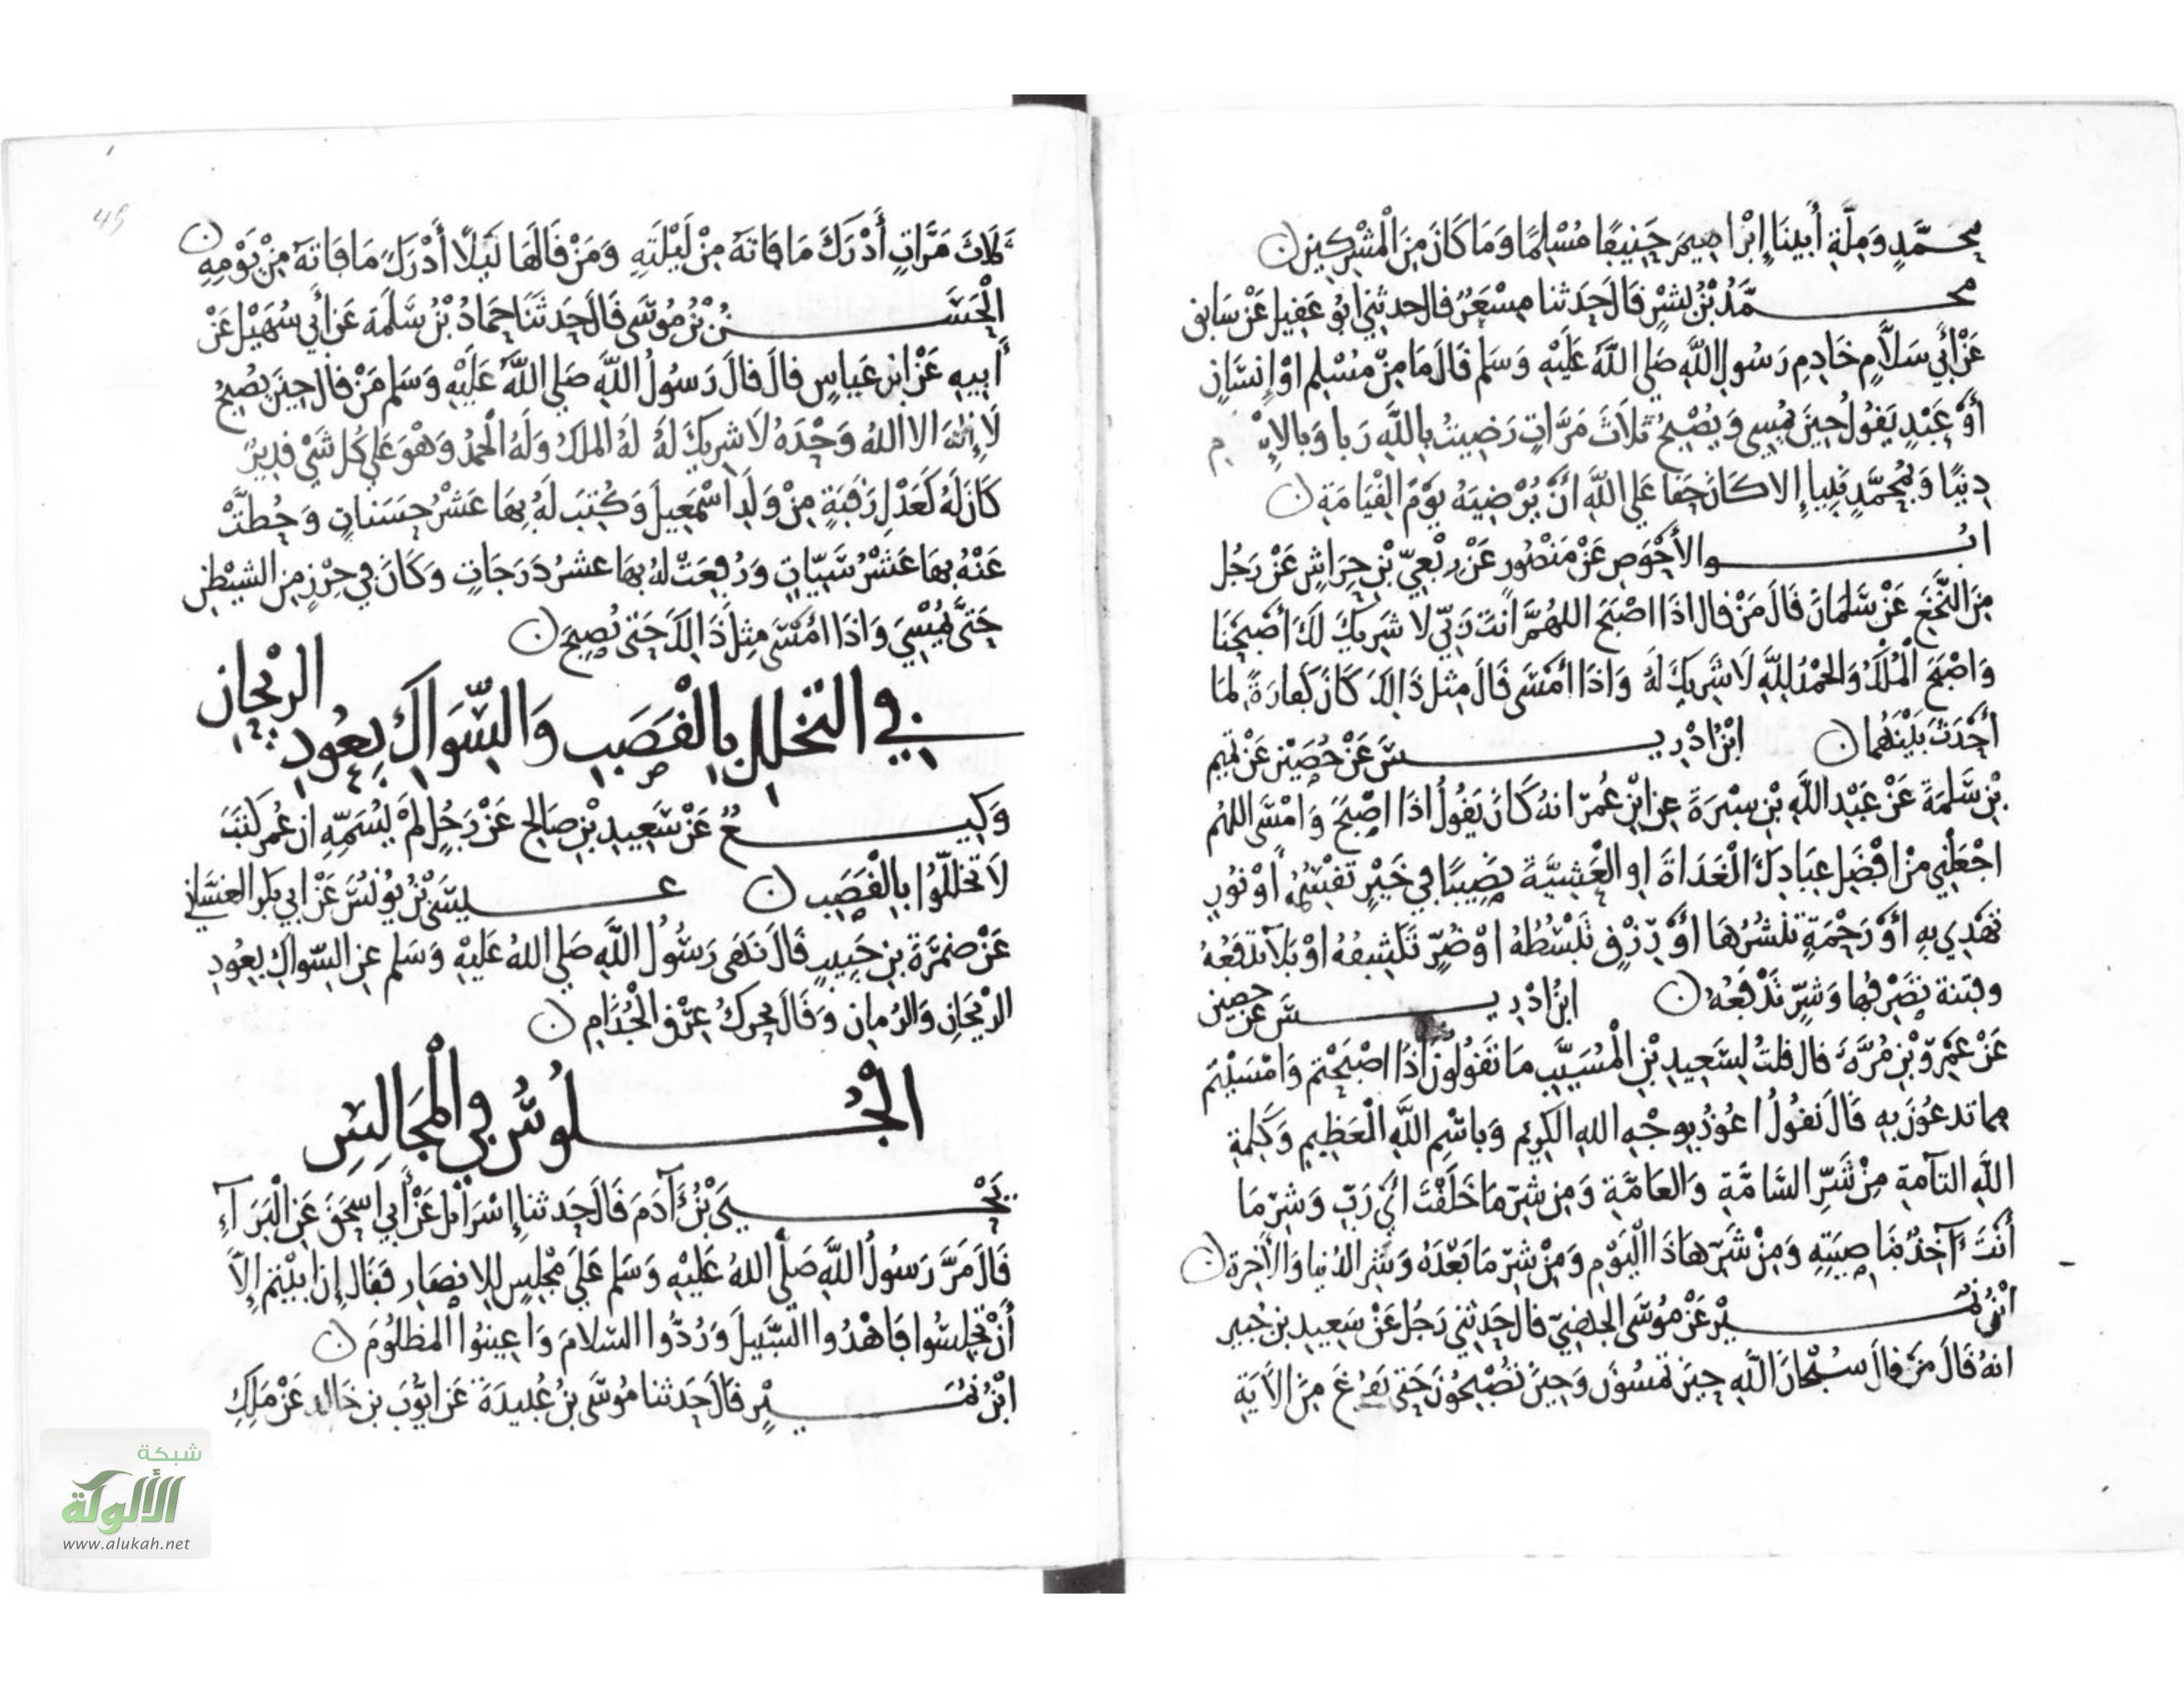 مُحَمَّدٍ وَمِلَّةِ أَبِينَا إِبْرَاهِيمَ حَنِيفًا مُسْلِمًا وَمَا كَانَ مِنَ الْمُشْرِكِينَ
محمَّدُ بْنُ بِشْرٍ قَالَ حَدَثنا مِسْعَرٌ قال حدثني ابُو عَقِيل عَنْ سَابق
عَنْ أَبِي سَلَّامٍ خَادِمِ رَسُولِ اللَّهِ صَلى اللَّهُ عَلَيْهِ وَسَلم قَالَ مَا مِنْ مُسْلِمٍ اوْ إِنسَانٍ
أَوْ عَبْدٍ يَقُولُ حِينَ يُمْسِي وَيُصْبِحُ ثَلاثَ مَرَّاتٍ رَضِيتُ بِاللَّهِ رَبا وَبالإِ م
دِينًا وَبِمُحَمَّدٍ نَبِيا إِلا كَانَ حَقا عَلى اللَّهِ انْ يُرْضِيَهُ يَوْمَ الْقِيَامَةِ
ابُو الأَحْوَصِ عَنْ مَنْصُورٍ عَنْ رِبْعِيّ بْنِ حِرَاشٍ عَنْ رَجُل
مِنَ النَّخَعِ عَنْ سَلْمَانَ قَالَ مَنْ قال اذَا اصْبَحَ اللهُمَّ انتَ رَبّي لا شَرِيكَ لَكَ أَصْبَحْنَا
وَاصْبَحَ الْمُلْكُ وَالحَمْدُ لِلَّهِ لَا شَرِيكَ لَهُ وَاذَا أمْسَى قَالَ مِثلَ ذَالِكَ كَانَ كَفارَةً لِمَا
أحْدَثَ بَيْنَهُمَا ابْنُ ادْرِيسَ عَنْ حُصَيْنٍ عَنْ تميم
بْنِ سَلَمَةَ عَنْ عَبْدِ اللَّهِ بْنِ سبْرَةَ عن ابْنِ عُمَرَ انهُ كَانَ يَقُولُ اذَا اصْبَحَ وَامْسَى اللهُم
اجْعَلْنِي مِنْ افْضَلِ عِبَادِكَ الْغَدَاةَ او الْعَشِيَّةَ نَصِيبًا فِي خَيْرٍ تَقْسِمُهُ أَوْ نُورٍ
تَهْدِي بِهِ أَوْ رَحْمَةٍ تَنْشُرُهَا أَوْ رِزْقٍ تَبْسُطُهُ اوْ ضُرّ تَكْشِفُهُ اوْ بَلَا تدْفَعُهُ
وفِتنة تَصْرفُها وَشَرّ تَدْفَعُهُ ابْنُ ادْرِيسَ عَنْ حصين
عَنْ عَمْرِو بْنِ مُرَّةَ قال قلتُ لِسَعِيدِ بْنِ الْمُسَيَّبِ مَا تَقُولُونَ اذَا اصْبَحْتم وَامْسَيْتُم
مما تدعُونَ بِهِ قَالَ نَقُولُ اعُوذُ بِوَجْهِ اللهِ الكَرِيمِ وَباسْمِ اللَّهِ الْعَظِيمِ وَكَلِمَةِ
اللَّهِ التآمةِ مِنْ شَرِّ السَّامَّةِ وَالعَامَّةِ وَمِنْ شرّ مَا خَلَقْتَ أيْ رَبّ وَشرّ مَا
أنْتَ آخِذٌ بنَاصِيَتِهِ وَمِنْ شَرّ هَاذَا الْيَوْمِ وَمِنْ شرّ مَا بَعْدَهُ وَشر الدُنيا وَالأَخِرة
ابْنُ نُمَيْرٍ عَنْ مُوسَى الجهَنِيّ قال حَدثني رَجُل عَنْ سَعِيدِ بن جُبير
انهُ قَالَ مَنْ قالَ سُبْحَانَ اللَّهِ حِينَ تُمْسُونَ وَحِينَ تُصْبِحُونَ حَتى يَفرُغَ مِنَ الآَيَةِ
ثَلَاثَ مَرَّاتٍ أَدْرَكَ مَا فَاتهُ مِنْ لَيْلَتِهِ وَمَنْ قَالَهَا لَيْلًا أَدْرَكَ مَا فَاتهُ مِنْ يَوْمِهِ
الْحَسَنُ بْنُ مُوسَى قَالَ حَدَثَنَا حَمادُ بْنُ سَلَمَة عَن أَبي سُهَيْل عَنْ
أَبِيهِ عَنْ ابْنِ عَبَّاسٍ قال قالَ رَسُولُ اللَّهِ صَلى اللَّهُ عَلَيْهِ وَسَلم مَنْ قال حِينَ يُصْبِحُ
لَا إِلَهَ الا اللهُ وَحْدَهُ لَا شرِيكَ لَهُ لهُ الملكُ وَلَهُ الْحَمدُ وَهْوَ عَلى كُل شَيْ قديرٌ
كَانَ لَهُ كَعَدْلِ رَقَبَةٍ مِنْ وَلَدِ اسْمَعِيلَ وَكُتِبَ لَهُ بِهَا عَشْرُ حَسَنَاتٍ وَحُطتْ
عَنْهُ بِهَا عَشْرُ سَيّئَاتٍ وَرُفِعَتْ لهُ بِهَا عشرُ دَرَجَاتٍ وَكَانَ فِي حِرْزٍ مِنَ الشيْطنِ
حَتَّى يُمْسِيَ وَاذَا امْسَى مِثلَ ذَالِكَ حَتى يُصْبِحَ
في التخلل بِالْقَصَبِ وَالسِّوَاكِ بِعُودِ الريْحانِ
وَكِيعٌ عَنْ سَعِيدِ بْنِ صَالحٍ عَنْ رَجُلٍ لمْ يُسَمِّهِ ان عُمرَ كَتَبَ
لَا تَخَللُوا بِالْقَصَبِ عيسَى بْنُ يُونُسَ عَنْ ابي بكر الغسَّاني
عَنْ ضمْرَةَ بنِ حَبِيبٍ قَالَ نَهَى رَسُولُ اللَّهِ صَلى اللهُ عَلَيْهِ وَسَلم عن السّواكِ بِعُودِ
الريْحَانِ وَالرُمانِ وَقَالَ يُحركُ عِرْقَ الْجُذَامِ
الْجُلُوسُ في الْمجَالِسِ
يَحْيَى بْنُ آدَمَ قَالَ حَدثنا إِسْرَائيلُ عَنْ أَبِي اسْحَقَ عَنِ الْبَرَآءِ
قَالَ مَرَّ رَسُولُ اللَّهِ صَلَّى اللهُ عَلَيْهِ وَسَلم عَلَى مَجْلِسٍ لِلانصَارِ فَقَال إِنْ ابَيْتم إِلَّا
أَنْ تَجْلِسُوا فَاهْدُوا السَّبِيلَ وَرُدُّوا السَلامَ وَاعِينُوا المَظلُومَ
ابْنُ نُمَيْرٍ قَالَ حَدثنا مُوسَى بنُ عُبيدَةَ عَن ايُّوبَ بن خَالد عَنْ مَلِكِ
شبكة
الألوكة
www.alukah.net